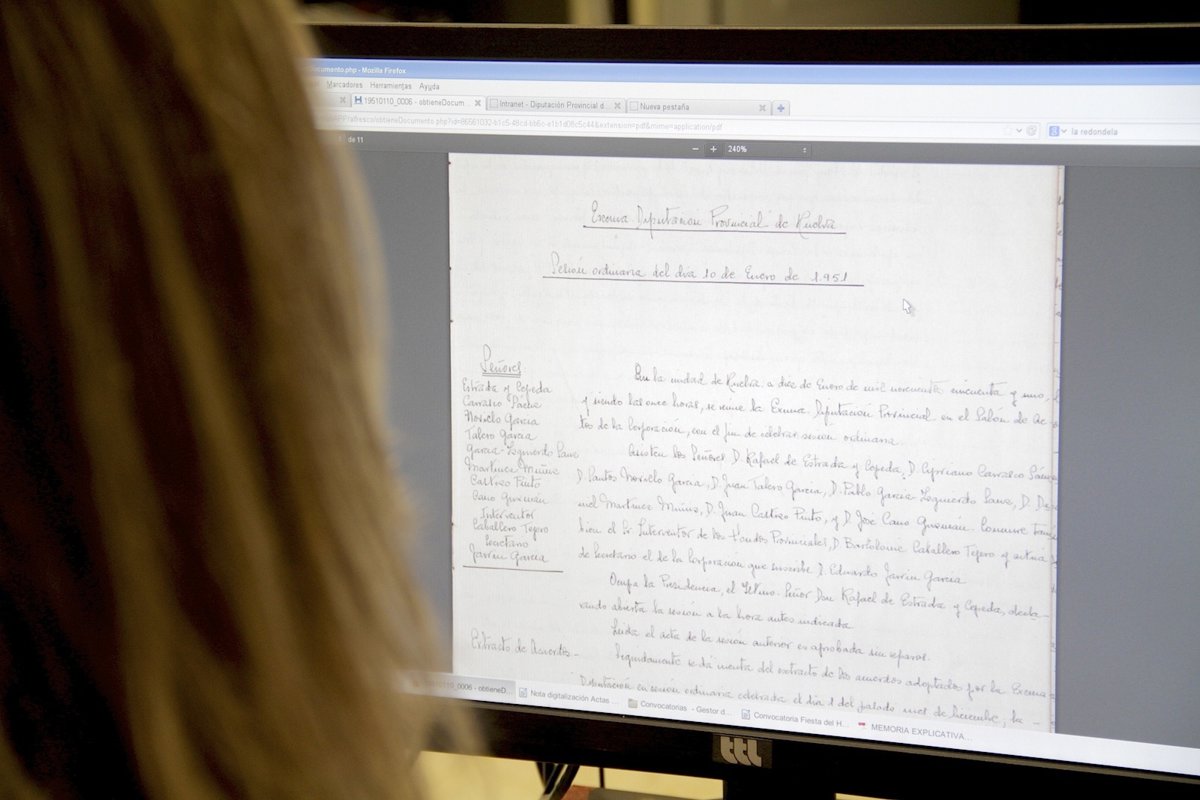 Documento.php - Mozilla Firefox
Marcadores Herramientas Ayuda
19510110_0006 - obtieneDocum... Intranet - Diputación Provincial d... Nueva pestaña
obtieneDocumento.php?id=86561032- &extension=pdf&mime=application/pdf
la redondela
de 11
240%
Excma Diputación Provincial de Huelva
Sesión ordinaria del día 10 de Enero de 1.951
Señores
Estrada y Cepeda
Carrasco Sáenz
Morillo Garcia
Talero Garcia
Garcia-Izquierdo Sanz
Martinez Muñiz
Castizo Pinto
Cano Guzmán
Interventor
Caballero Tejero
Secretario
Jarrin Garcia
En la ciudad de Huelva a diez de Enero de mil novecientos cincuenta y uno,
y siendo las once horas, se reune la Excma. Diputación Provincial en el Salón de Ac-
tos de la Corporación, con el fin de celebrar sesión ordinaria.
Asisten los Señores D. Rafael de Estrada y Cepeda, D. Cipriano Carrasco Sáenz
D. Santos Morillo Garcia, D. Juan Talero Garcia, D. Pablo Garcia Izquierdo Sanz, D.
Martinez Muñiz, D. Juan Castizo Pinto, y D. Jose Cano Guzmán. Concurre tam-
bien el Sr Interventor de los Fondos Provinciales, D. Bartolome Caballero Tejero y actúa
de Secretario el de la Corporación que suscribe D. Eduardo Jarrin Garcia
Ocupa la Presidencia, el Iltmo. Señor Don Rafael de Estrada y Cepeda, decla-
rando abierta la sesión a la hora antes indicada.
Leida el acta de la sesión anterior es aprobada sin reparos.
Extracto de Acuerdos.-
Seguidamente se dá cuenta del extracto de los acuerdos adoptados por la Excma
Diputación en sesión ordinaria celebrada el día 1 del pasado mes de Diciembre, la
0006 - obtieneD... Nota digitalización Actas ... Convocatorias - Gestor d... Convocatoria Fiesta del H... MEMORIA EXPLICATIVA...
ttl